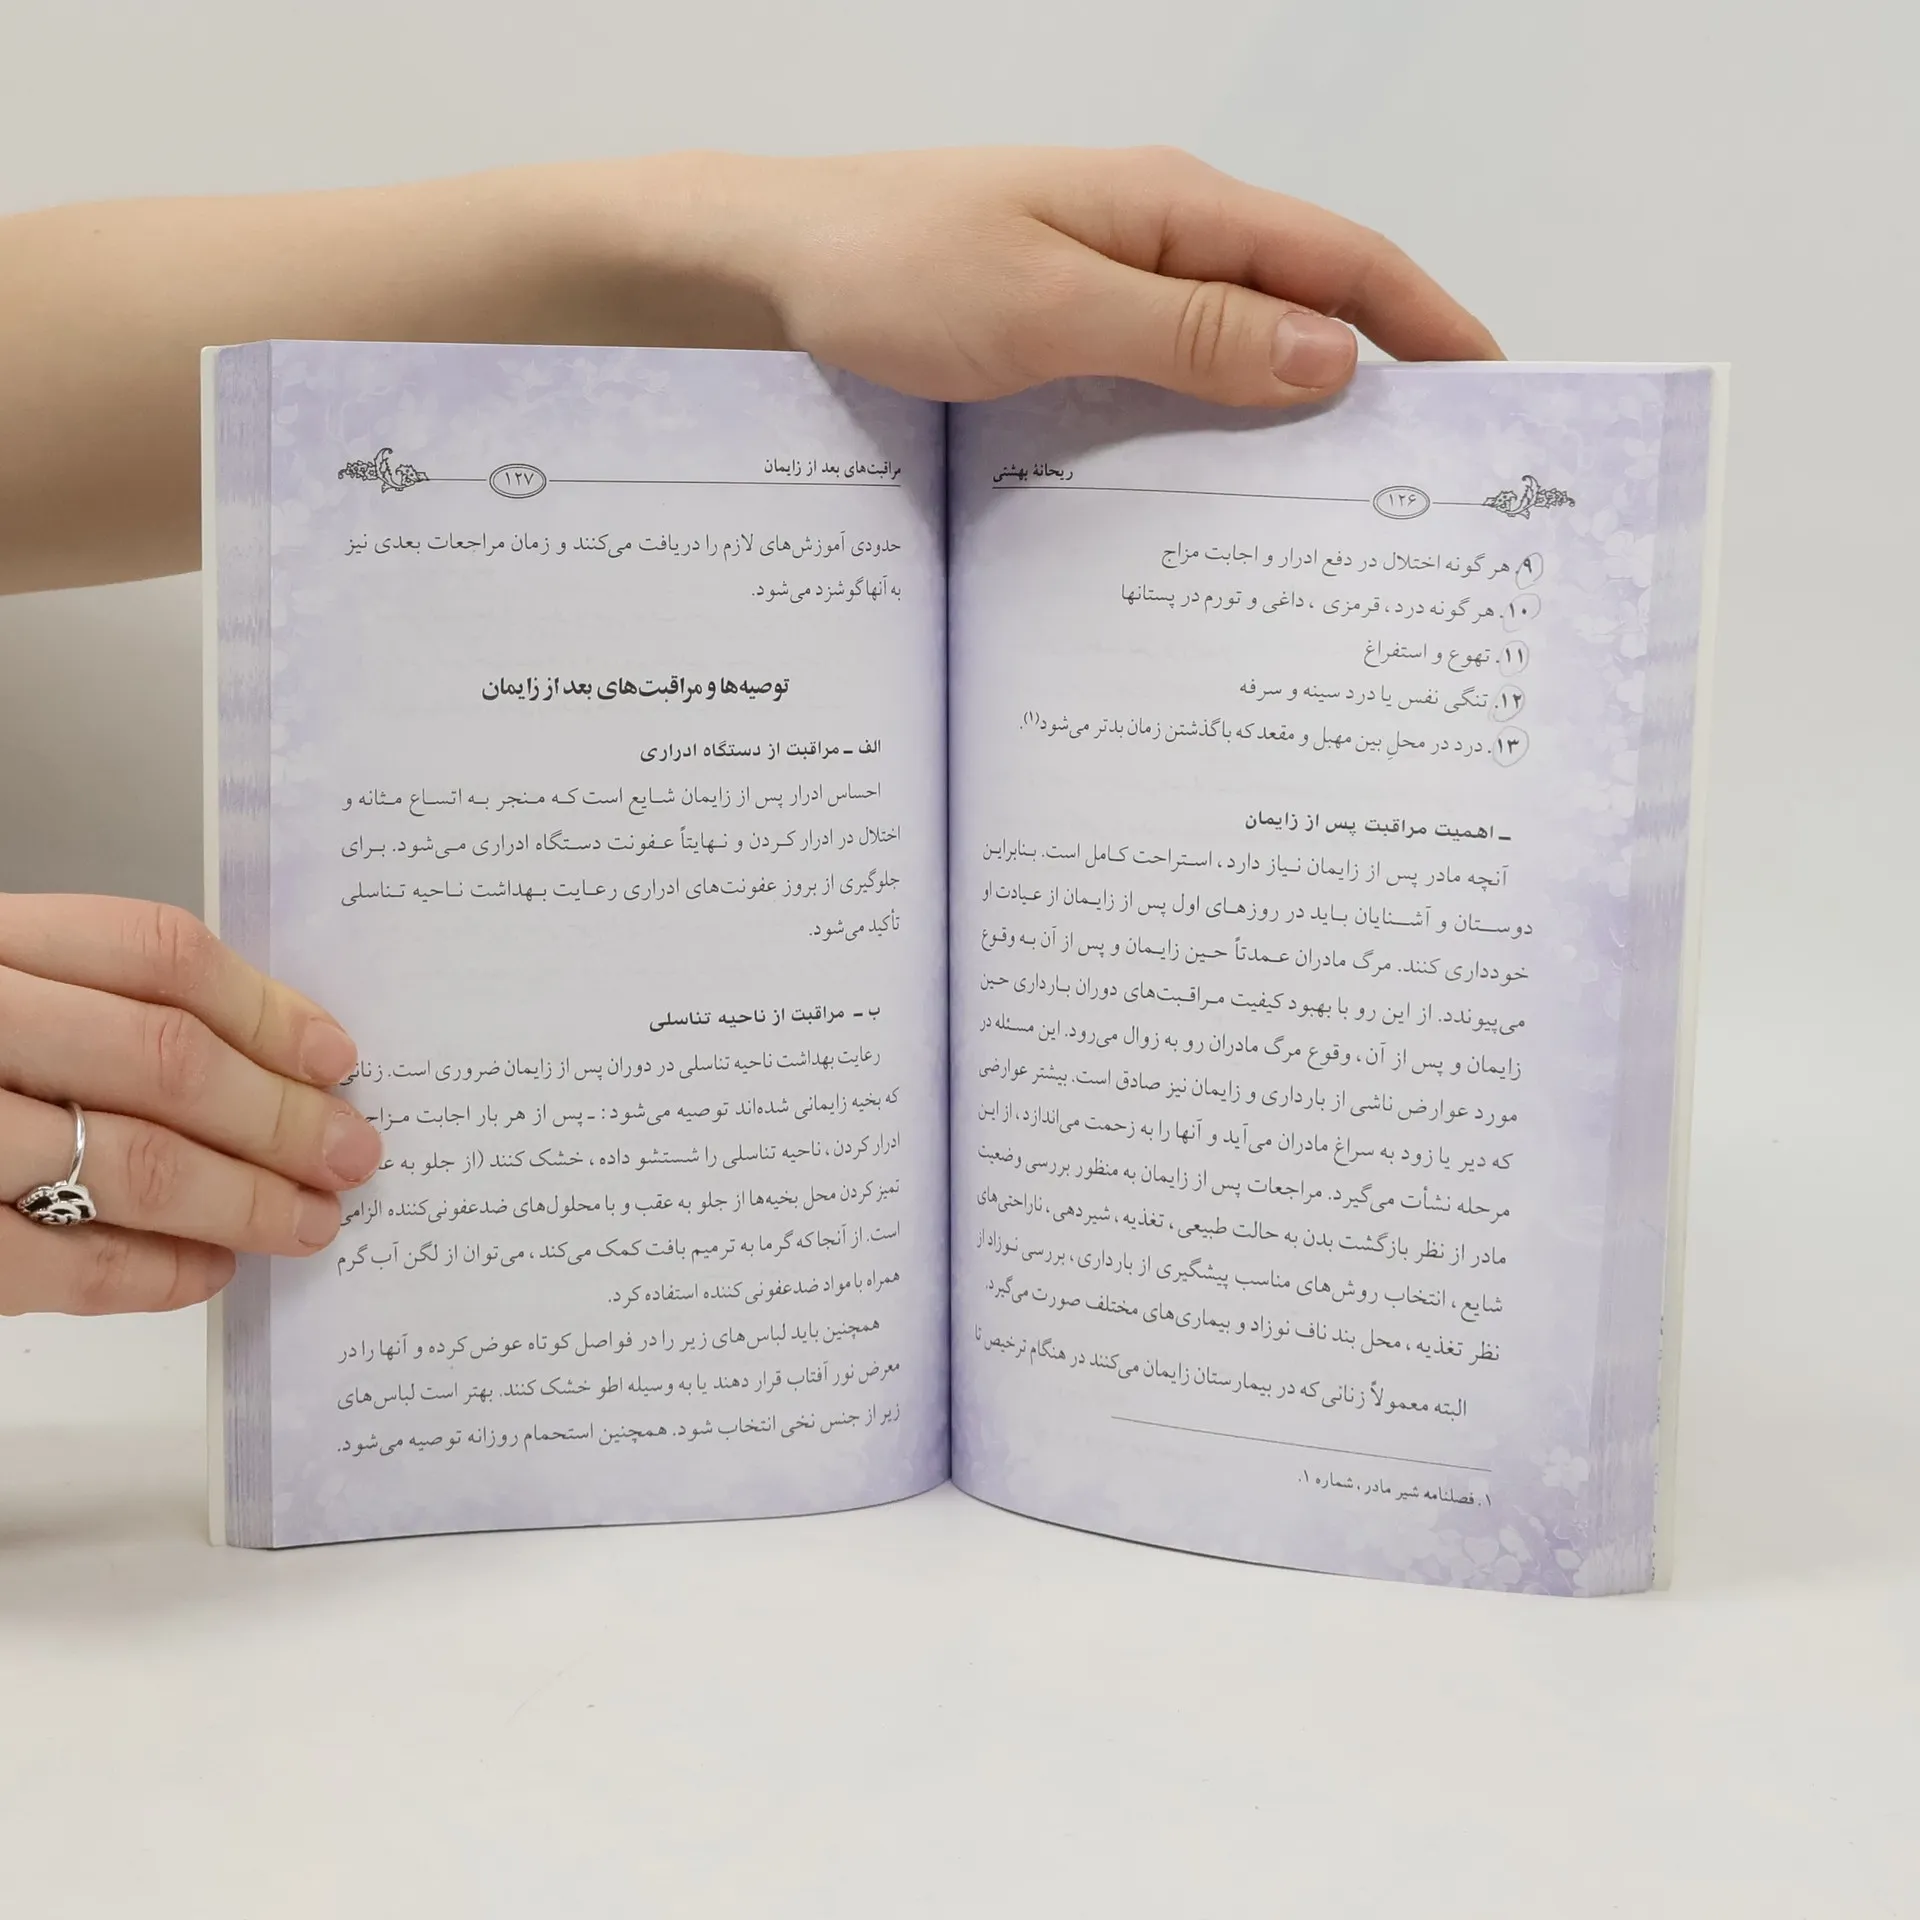 ریحانهٔ بهشتی
۱۲۶
۹. هر گونه اختلال در دفع ادرار و اجابت مزاج
۱۰. هر گونه درد، قرمزی، داغی و تورم در پستانها
۱۱. تهوع و استفراغ
۱۲. تنگی نفس یا درد سینه و سرفه
۱۳. درد در محلِ بین مهبل و مقعد که با گذشتن زمان بدتر می‌شود(۱).
ـ اهمیت مراقبت پس از زایمان
آنچه مادر پس از زایمان نیاز دارد، استراحت کامل است. بنابراین
دوستان و آشنایان باید در روزهای اول پس از زایمان از عیادت او
خودداری کنند. مرگ مادران عمدتاً حین زایمان و پس از آن به وقوع
می‌پیوندد. از این رو با بهبود کیفیت مراقبت‌های دوران بارداری حین
زایمان و پس از آن، وقوع مرگ مادران رو به زوال می‌رود. این مسئله در
مورد عوارض ناشی از بارداری و زایمان نیز صادق است. بیشتر عوارضی
که دیر یا زود به سراغ مادران می‌آید و آنها را به زحمت می‌اندازد، از این
مرحله نشأت می‌گیرد. مراجعات پس از زایمان به منظور بررسی وضعیت
مادر از نظر بازگشت بدن به حالت طبیعی، تغذیه، شیردهی، ناراحتی‌های
شایع، انتخاب روش‌های مناسب پیشگیری از بارداری، بررسی نوزاد از
نظر تغذیه، محل بند ناف نوزاد و بیماری‌های مختلف صورت می‌گیرد.
البته معمولاً زنانی که در بیمارستان زایمان می‌کنند در هنگام ترخیص تا
۱. فصلنامه شیر مادر، شماره ۱.
مراقبت‌های بعد از زایمان
۱۲۷
حدودی آموزش‌های لازم را دریافت می‌کنند و زمان مراجعات بعدی نیز
به آنها گوشزد می‌شود.
توصیه‌ها و مراقبت‌های بعد از زایمان
الف ـ مراقبت از دستگاه ادراری
احساس ادرار پس از زایمان شایع است که منجر به اتساع مثانه و
اختلال در ادرار کردن و نهایتاً عفونت دستگاه ادراری می‌شود. برای
جلوگیری از بروز عفونت‌های ادراری رعایت بهداشت ناحیه تناسلی
تأکید می‌شود.
ب ـ مراقبت از ناحیه تناسلی
رعایت بهداشت ناحیه تناسلی در دوران پس از زایمان ضروری است. زنانی
که بخیه زایمانی شده‌اند توصیه می‌شود: ـ پس از هر بار اجابت مزاج
ادرار کردن، ناحیه تناسلی را شستشو داده، خشک کنند (از جلو به
تمیز کردن محل بخیه‌ها از جلو به عقب و با محلول‌های ضدعفونی‌کننده الزامی
است. از آنجا که گرما به ترمیم بافت کمک می‌کند، می‌توان از لگن آب گرم
همراه با مواد ضدعفونی کننده استفاده کرد.
همچنین باید لباس‌های زیر را در فواصل کوتاه عوض کرده و آنها را در
معرض نور آفتاب قرار دهند یا به وسیله اطو خشک کنند. بهتر است لباس‌های
زیر از جنس نخی انتخاب شود. همچنین استحمام روزانه توصیه می‌شود.